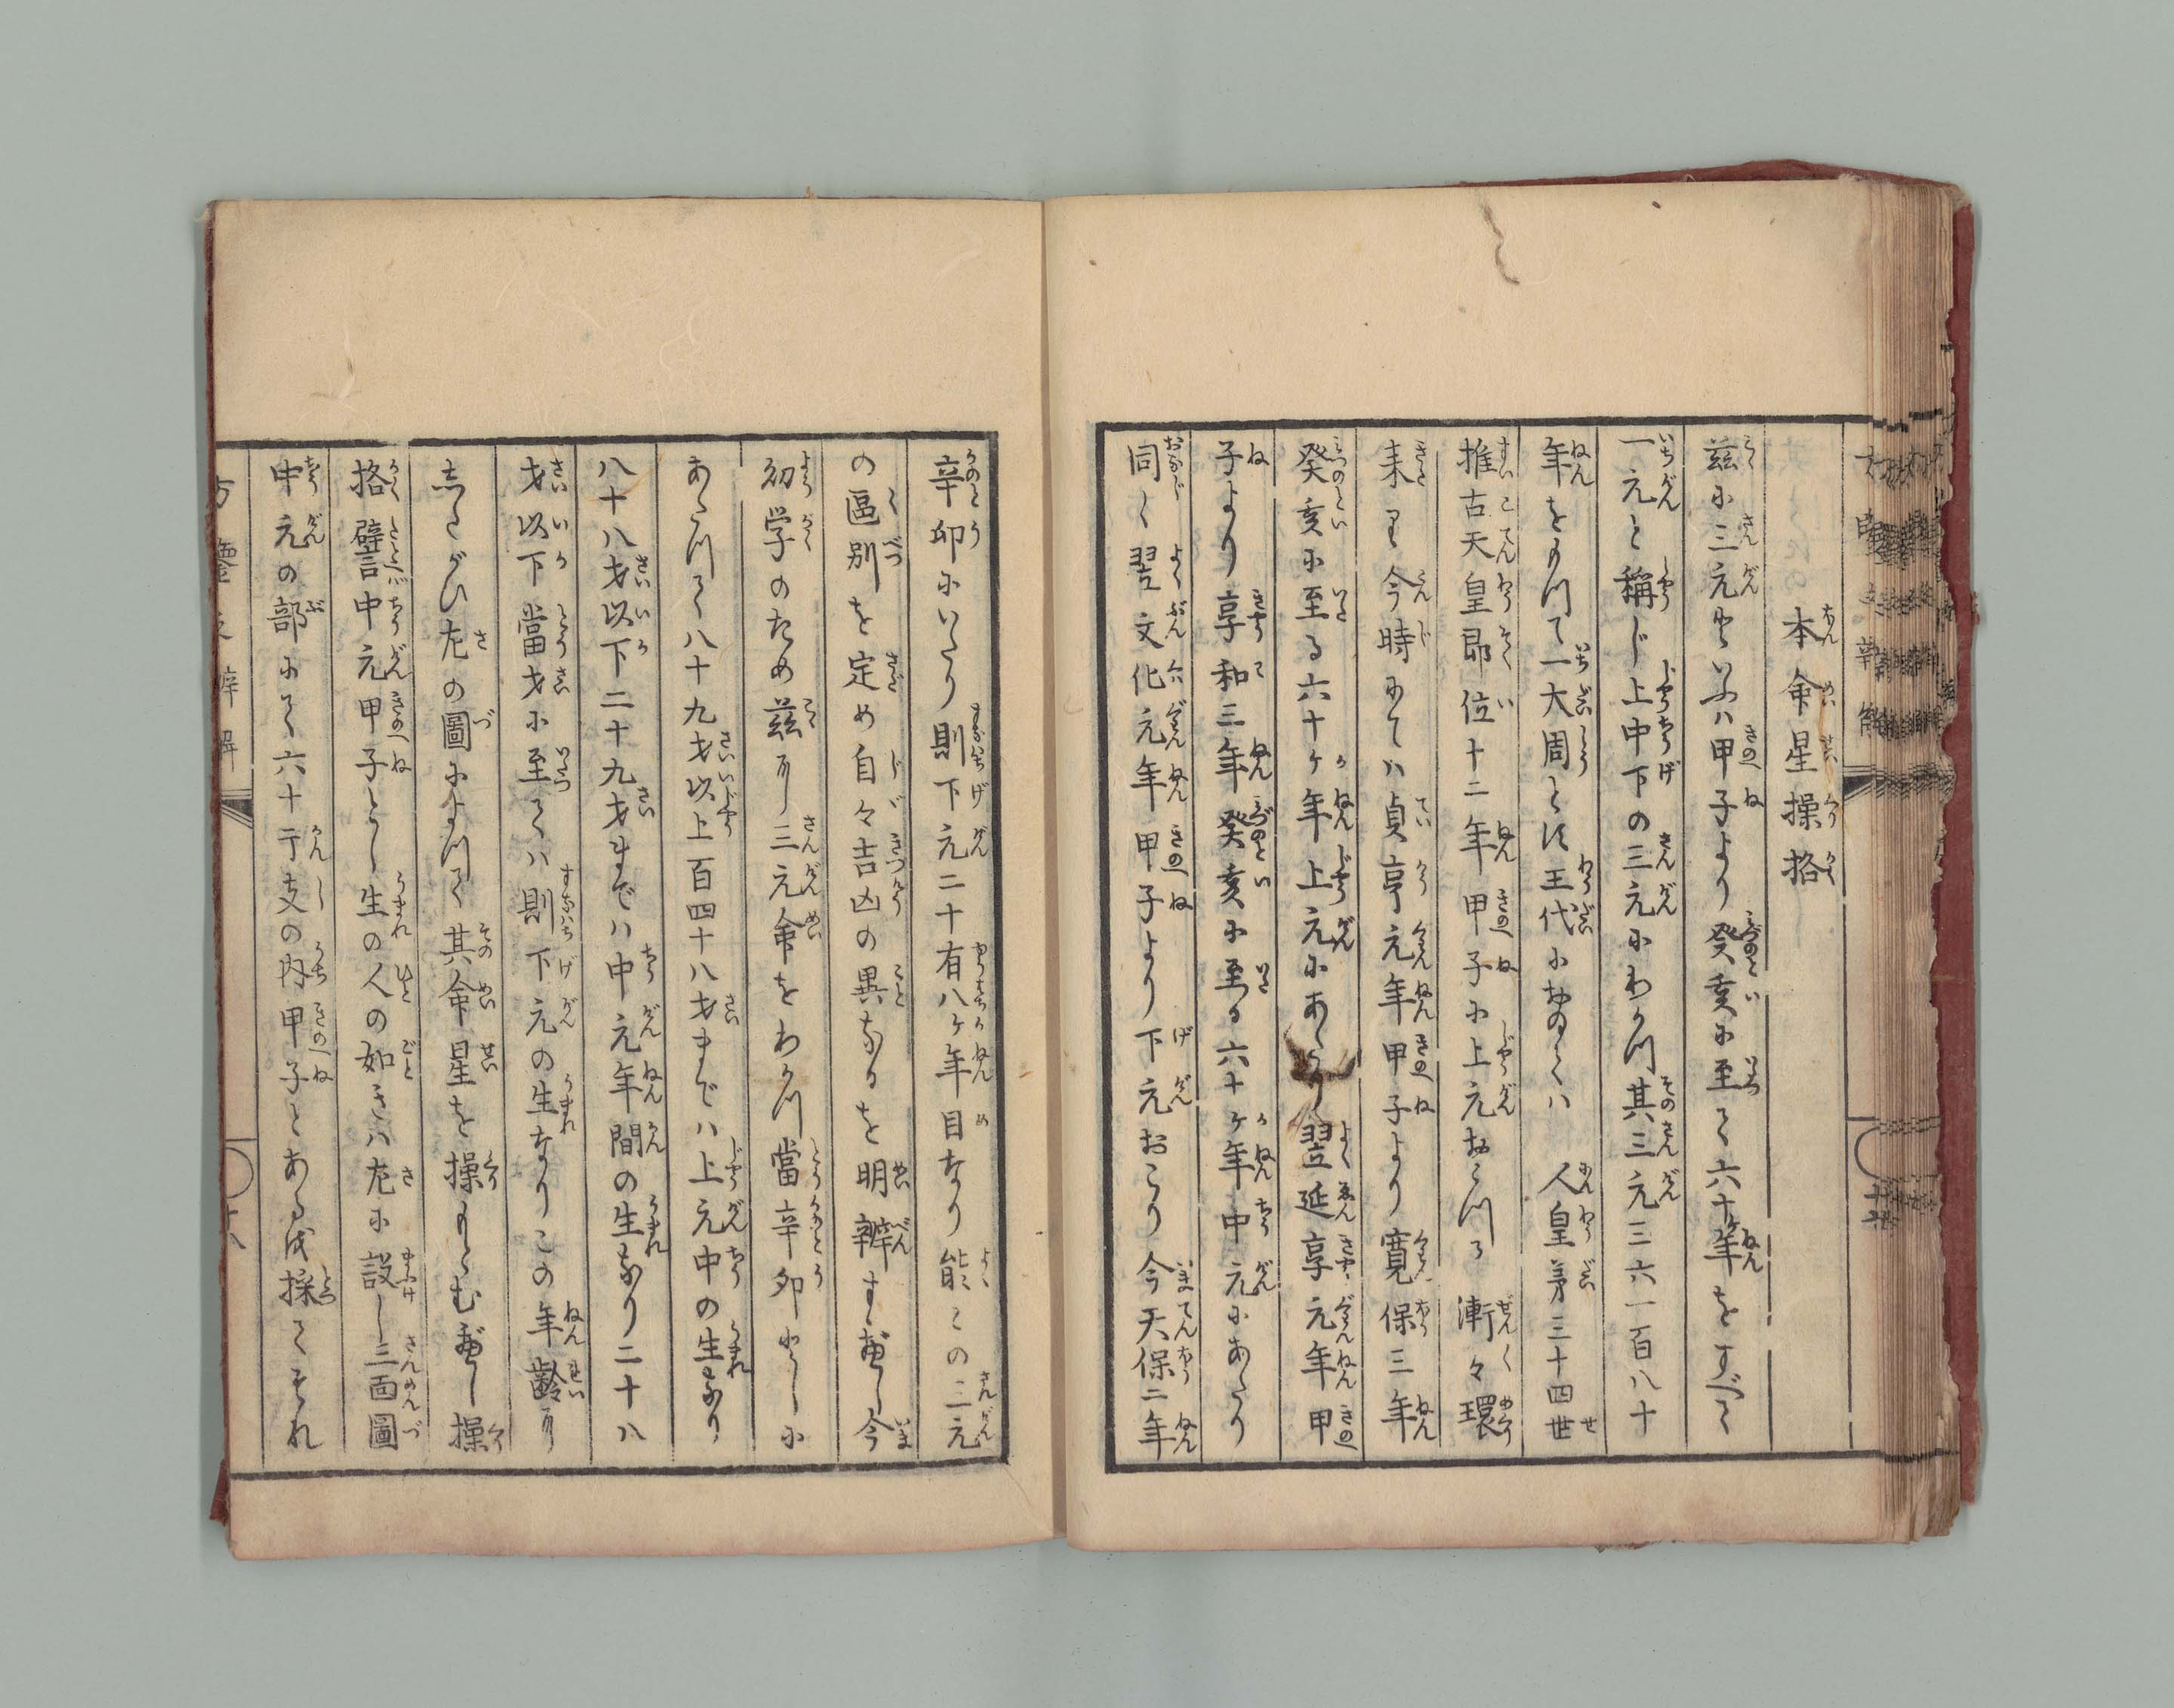 本命星操格
茲に三元といふハ甲子より癸亥に至て六十年をすべて
一元と稱し上中下の三元にわかつ其三元三六一百八十
年をもつて一大周とす王代におゐてハ 人皇第三十四世
推古天皇即位十二年甲子に上元おこつて漸々環
来り今時にてハ貞享元年甲子より寛保三年
癸亥に至る六十ケ年上元にあたり翌延享元年甲
子より享和三年癸亥に至る六十ケ年中元にあたり
同く翌文化元年甲子より下元おこり今天保二年
辛卯にいたり則下元二十有八ケ年目なり能この三元
の區別を定め自々吉凶の異なるを明辨すべし今
初学のため茲に三元命をわかつ當辛卯としに
あたつて八十九才以上百四十八才まではハ上元中の生なり
八十八才以下二十九才まではハ中元年間の生なり二十八
才以下當才に至てハ則下元の生なりこの年齢に
したがひ左の圖によつて其命星を操もとむべし操
格譬ハ中元甲子とし生の人の如きハ左に設し三面圖
中元の部にて六十干支の内甲子とある或採てそれ
方鑒之辨解
十八